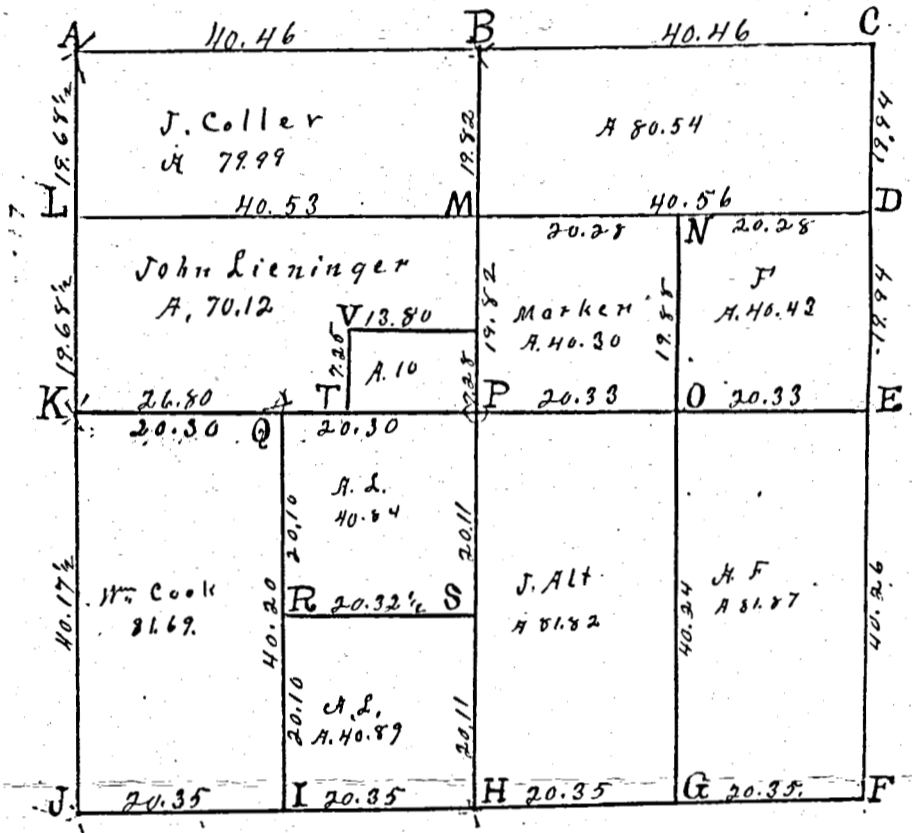 A 40.46 B 40.46 C
19.68½
J. Coller
A 79.99
19.82
A 80.54
19.94
L 40.53 M 40.56 D
20.28 N 20.28
19.68½
John Lieninger
A. 70.12
V 13.80
7.25
A. 10
19.82
7.28
Marker
A. 40.30
19.88
F
A. 40.43
19.94
K 26.80 T P 20.33 O 20.33 E
20.30 Q 20.30
40.17½
Wm Cook
81.69.
40.20
20.10
A. L.
40.84
20.11
R 20.32½ S
20.10
A. L.
A. 40.89
20.11
J. Alt
A 81.82
40.24
A. F
A 81.87
40.26
J 20.35 I 20.35 H 20.35 G 20.35. F